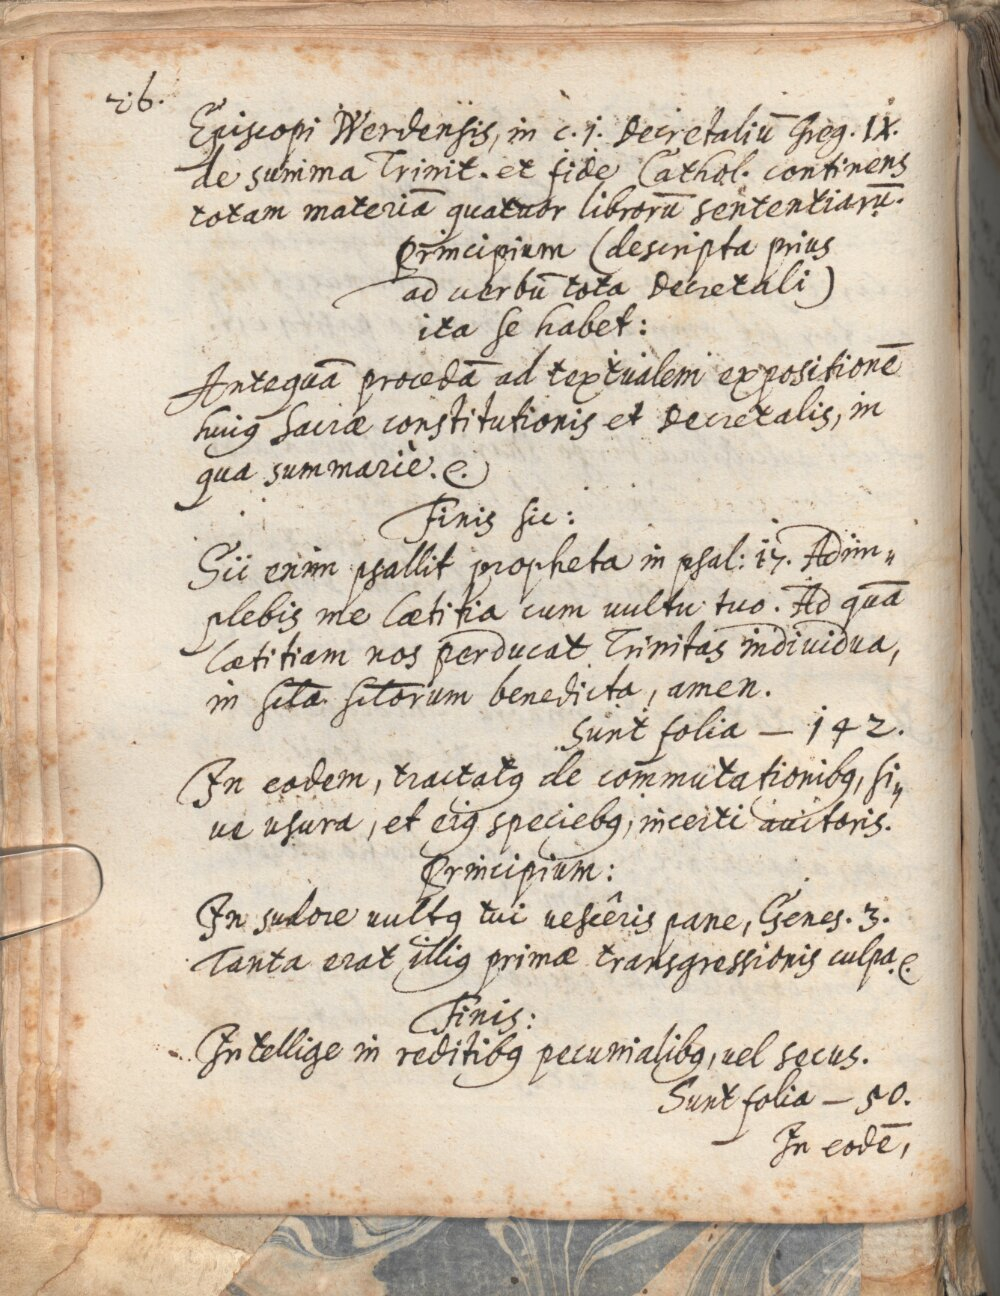 26.
Episcopi Werdēsis, in c. 1. Decretaliū Greg. IX.
de summa Trinit. et fide Cathol. continens
totam materiā quatuor librorū sententiarū.
Principium (descripta prius
ad uerbū tota Decretali)
ita se habet:
Antequā procedā ad textualem expositionē
huiꝰ sacræ constitutionis et Decretalis, in
qua summariè. &.
Finis sic:
Sic enim psallit propheta in psal: 15. Adim„
plebis me lætitia cum uultu tuo. Ad quā
lætitiam nos perducat Trinitas indiuidua,
in scta sctorum benedicta, amen.
Sunt folia — 142.
In eodem, tractatꝰ de commutationibꝰ, si„
ue usura, et eiꝰ speciebꝰ, incerti auctoris.
Principium:
In sudore uultꝰ tui uescêris pane, Genes. 3.
Tanta erat illiꝰ primæ transgressionis culpa. &.
Finis:
Intellige in reditibꝰ pecunialibꝰ, uel secus.
Sunt folia — 50.
In eodē,